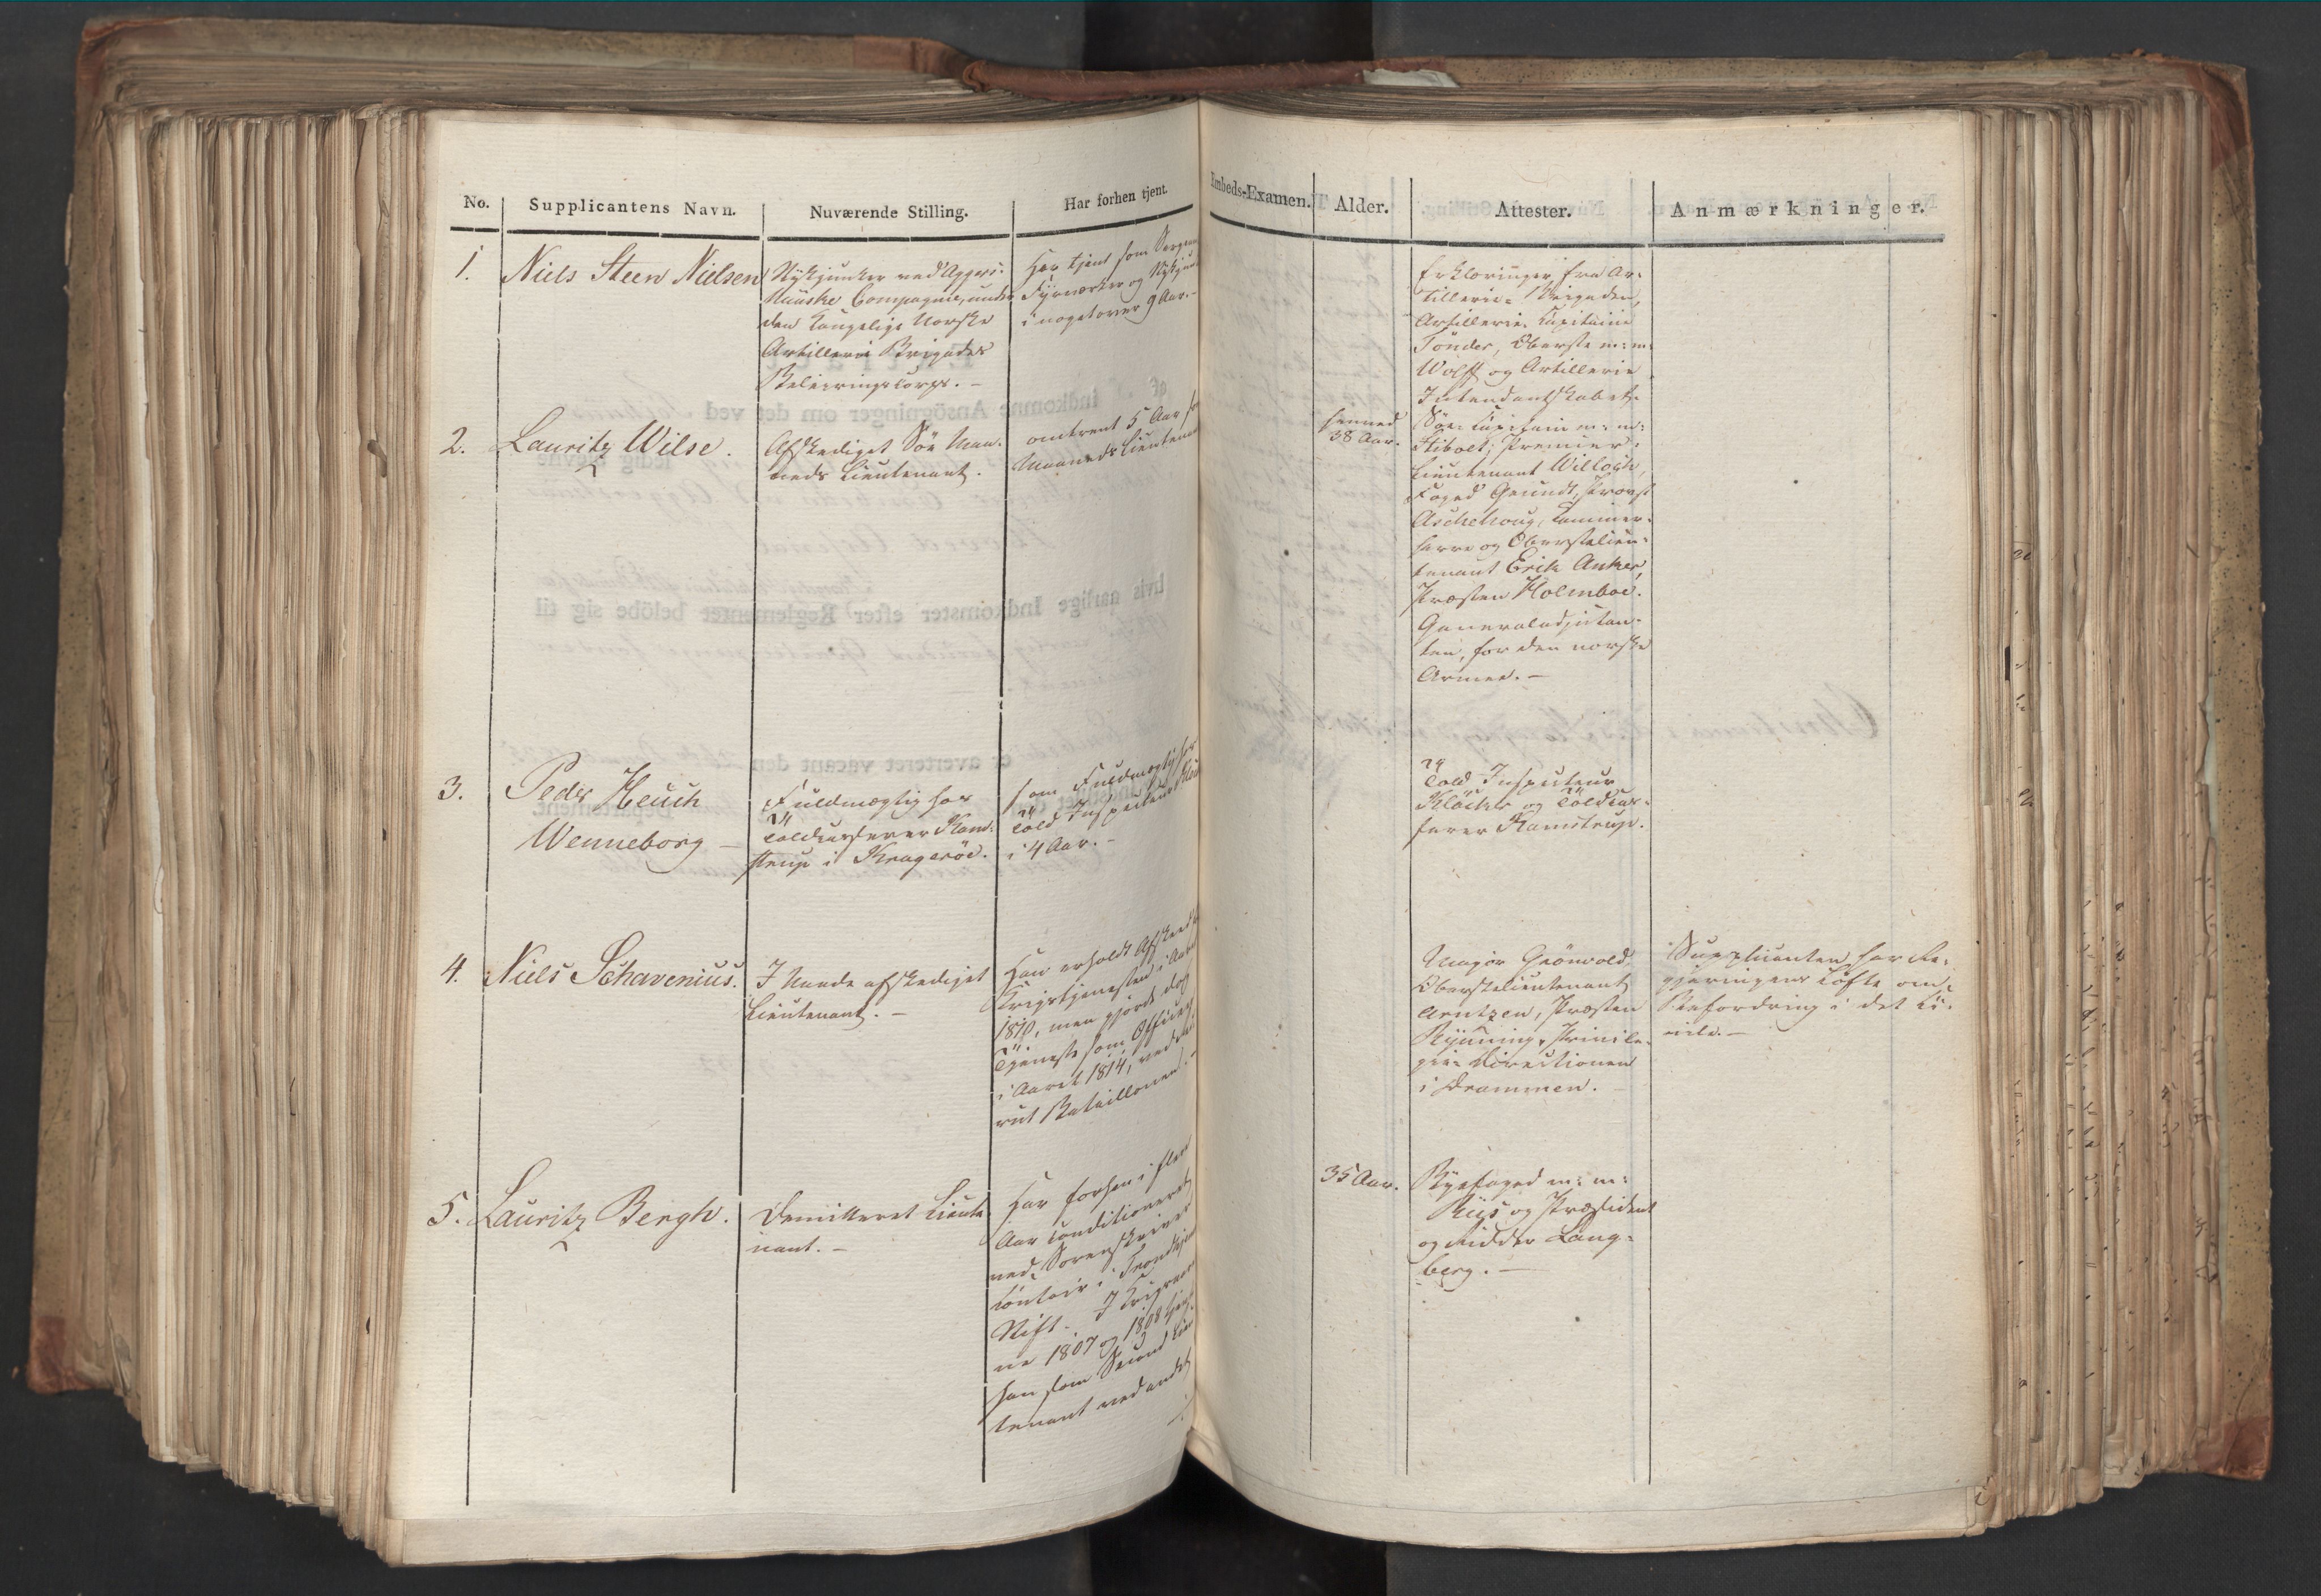 No.
Supplicantens Navn.
Nuværende Stilling.
Har forhen tjent
Embeds-Examen.
Alder.
Attester.
Anmærkninger.
1.
Niels Steen Nielsen
Stykjunker ved Aggers-
Huuske Compagnie, under
den Kongelige Norske
Artillerie Brigades
Beleiringscorps. –
Har tjent som
Fyrværker og
i noget over 9 Aar. –
Erklæringer fra Ar-
tillerie-Brigaden,
Artillerie-Capitaine
Tönder, Oberste m: m:
Wolff og Artillerie
Intendantskabet.
2.
Lauritz Wilse.
Afskediget Söe Maa-
neds Lieutenant.
omtrent 5 Aar
Maaneds Lieutenant
henved
38 Aar.
Söe-Capitain m: m:
Stibolt; Premier-
Lieutenant Willoch,
Foged Grundt, Provst
Aschehoug, Kammer-
herre og Oberstelieu-
tenant Erik Anker,
Præsten Holmboe.
Generaladjutan-
ten, for den norske
Armee. –
3.
Peder Heuch
Wenneborg –
Fuldmægtig hos
Toldcasserer Kam-
strup i Kragerøe.
som Fuldmægtig hos
Told Inspecteur
i 4 Aar. –
Told Inspecteur
Klöcker og Toldcas-
serer Kamstrup.
4.
Niels Schavenius.
I Naade afskediget
Lieutenant. –
Han erholdt Afskeed
Krigstjenesten i Aaret
1810, men gjorde dog
Tjeneste som Officer
i Aaret 1814, ved
Bataillonen. –
Major Grönvold
Oberstelieutenant
Arntzen, Præsten
Rynning, Privile-
gie-Directionen
i Drammen.
Supplicanten har Re-
gjeringens Löfte om
Befordring i det Ci-
vile. –
5.
Lauritz Bergh.
Demitteret Lieute-
nant. –
Har forhen i flere
Aar conditioneret
ved Sorenskriver
Contoir i Trondhjems
Stift. I Krigsaare-
ne 1807 og 1808
han som Second Lieu-
tenant ved andet
35 Aar.
Byefoged m: m:
Riis og Præsident
og Ridder Lang-
berg. –